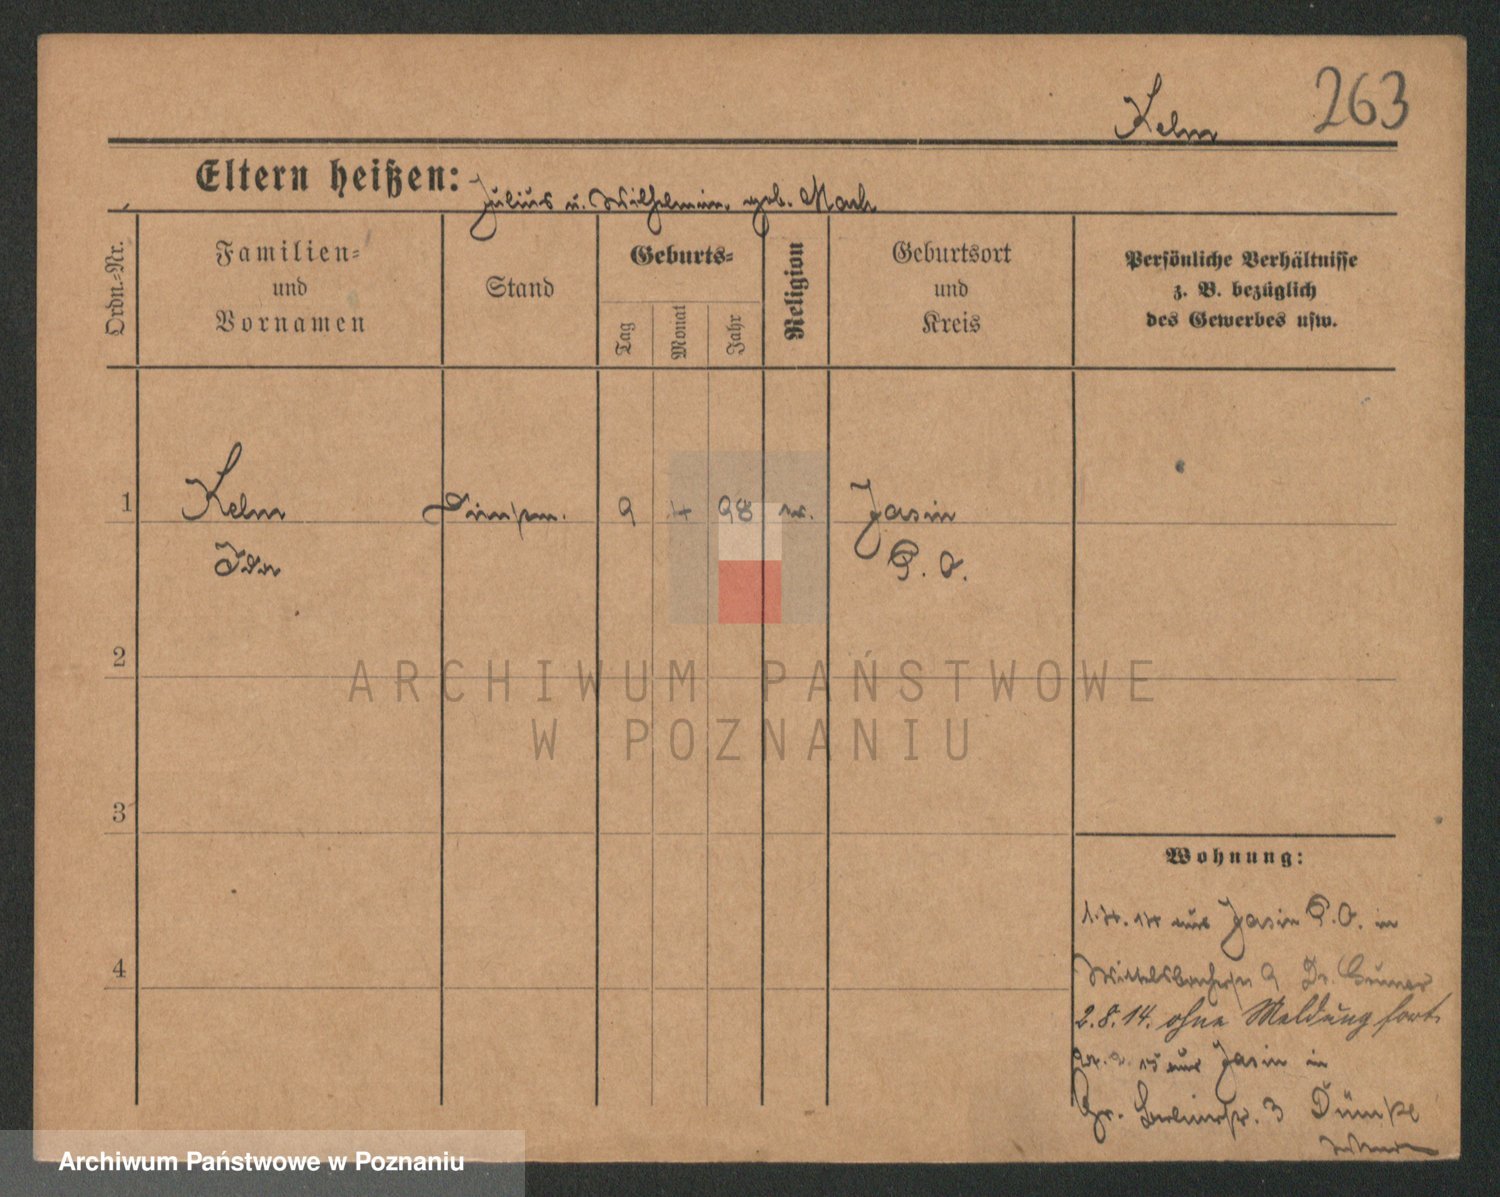 263
Kelm
Eltern heißen: Julius u. Wilhelmine geb. Mach
Ordn.=Nr.
Familien=
und
Vornamen
Stand
Geburts=
Tag
Monat
Jahr
Religion
Geburtsort
und
Kreis
Persönliche Verhältnisse
z. B. bezüglich
des Gewerbes usw.
1 Kelm 9 4 98 Jasin
Ida P. O.
2
ARCHIWUM PAŃSTWOWE
W POZNANIU
3
4
Wohnung:
aus Jasin P.O. in
Wittelsbacherstr 9 Dr.
2.8.14. ohne Meldung fort.
15 aus Jasin in
Gr. Berlinerstr. 3 Dümke
Archiwum Państwowe w Poznaniu